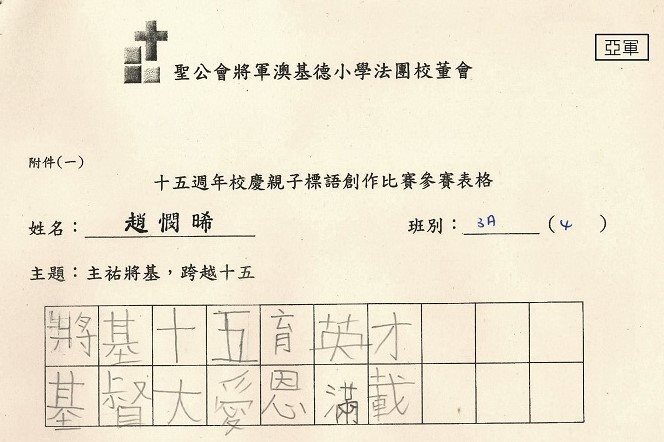 亞軍
聖公會將軍澳基德小學法團校董會
附件(一)
十五週年校慶親子標語創作比賽參賽表格
姓名：趙憫晞 班別：3A (4)
主題：主祐將基，跨越十五
將基十五育英才
基督大愛恩滿載